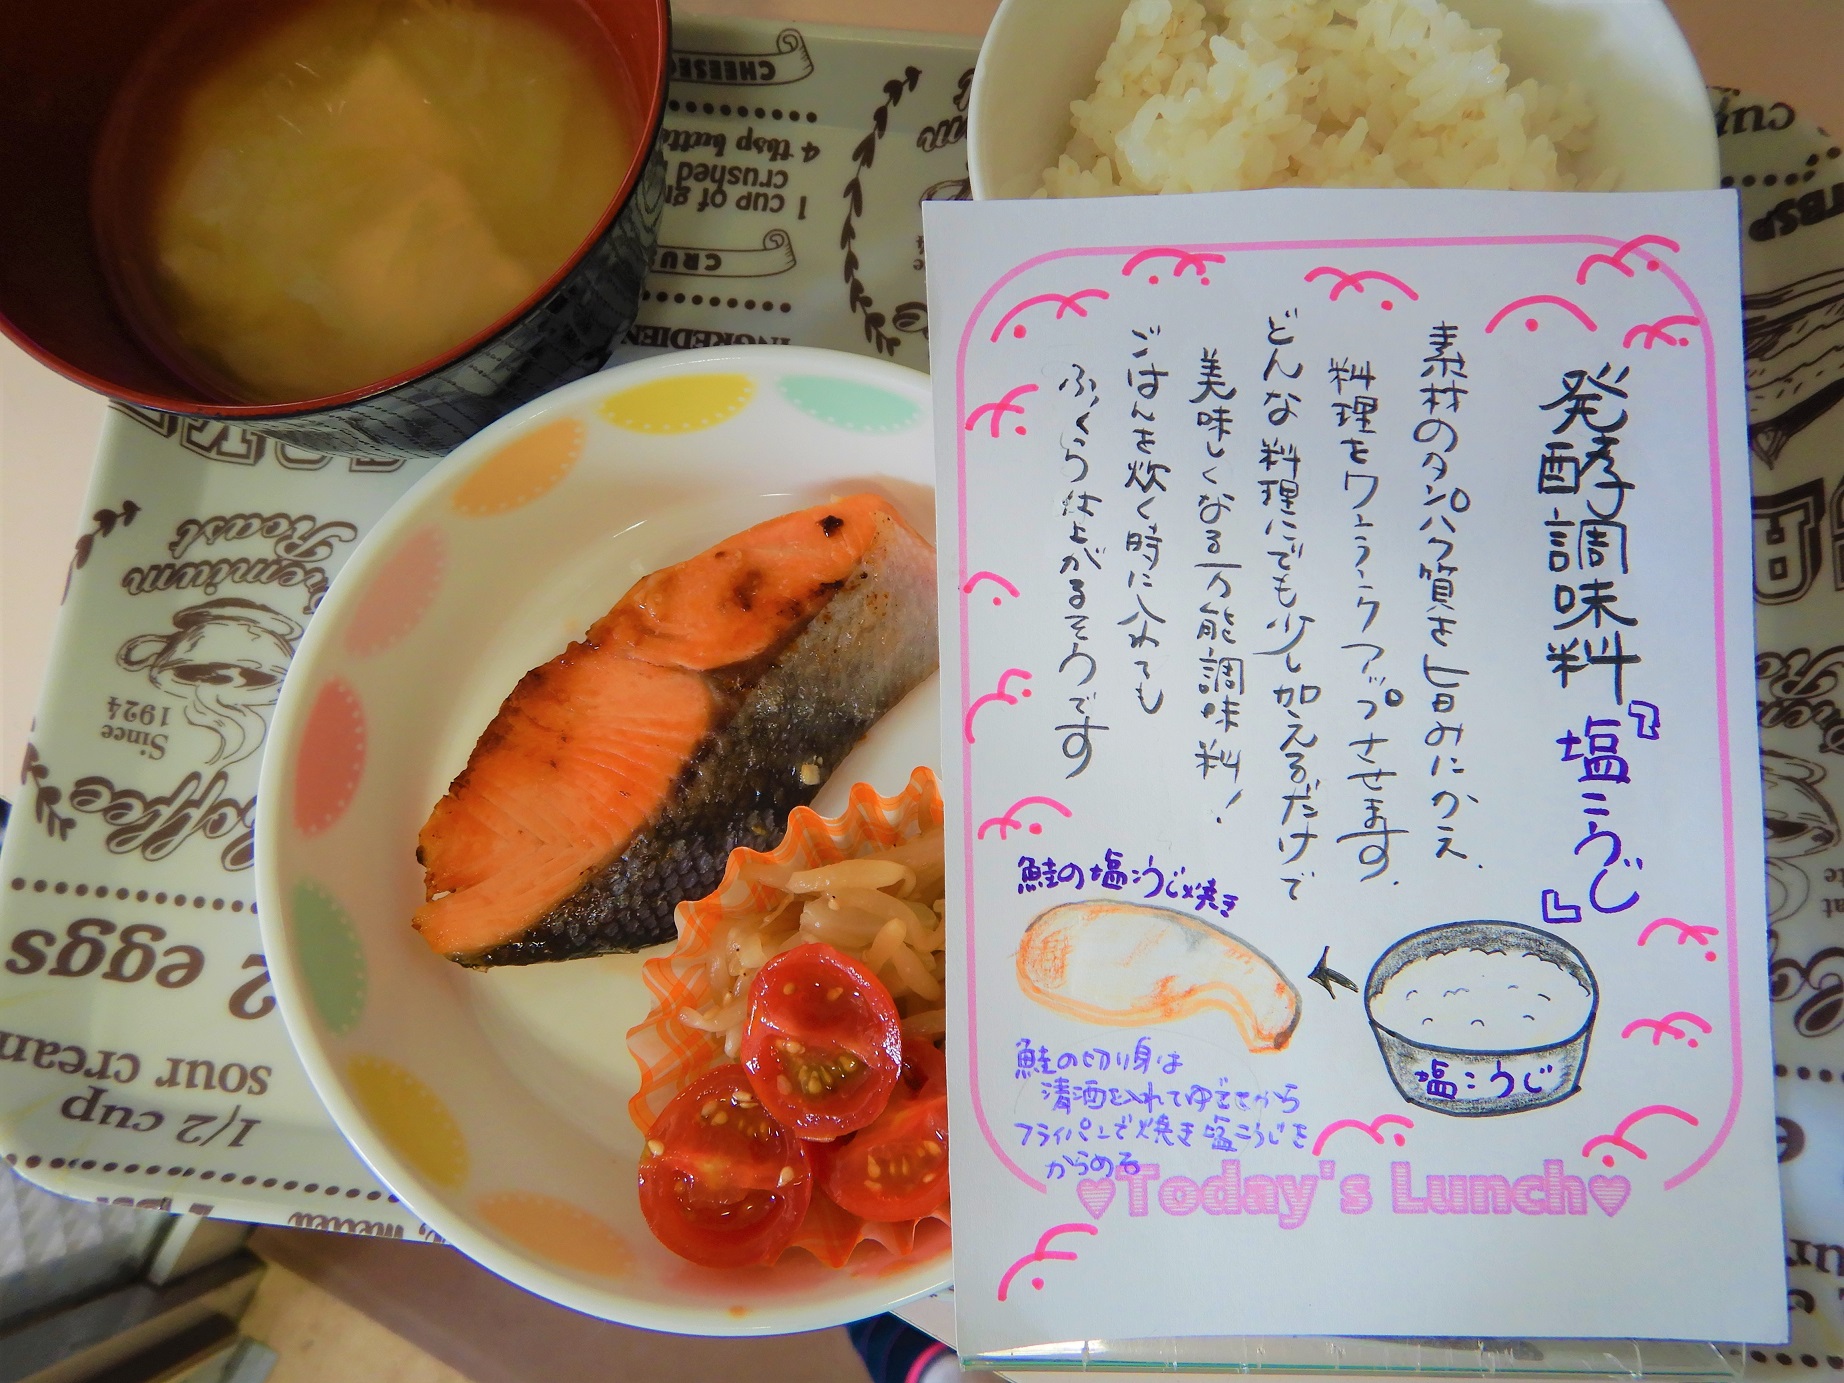 発酵調味料『塩こうじ』
素材のタンパク質を旨みにかえ、
料理をワンランクアップさせます。
どんな料理にでも少し加えるだけで
美味しくなる万能調味料!
ごはんを炊く時に入れても
ふっくら仕上がるそうです
鮭の塩こうじ焼き
塩こうじ
鮭の切り身は
清酒を入れてゆでてから
フライパンで焼き塩こうじを
からめる
♥Today's Lunch♥
4 tbsp
crushed
1 cup of
Premium
Roast
Since
1924
Coffee
2 eggs
sour cream
1/2 cup